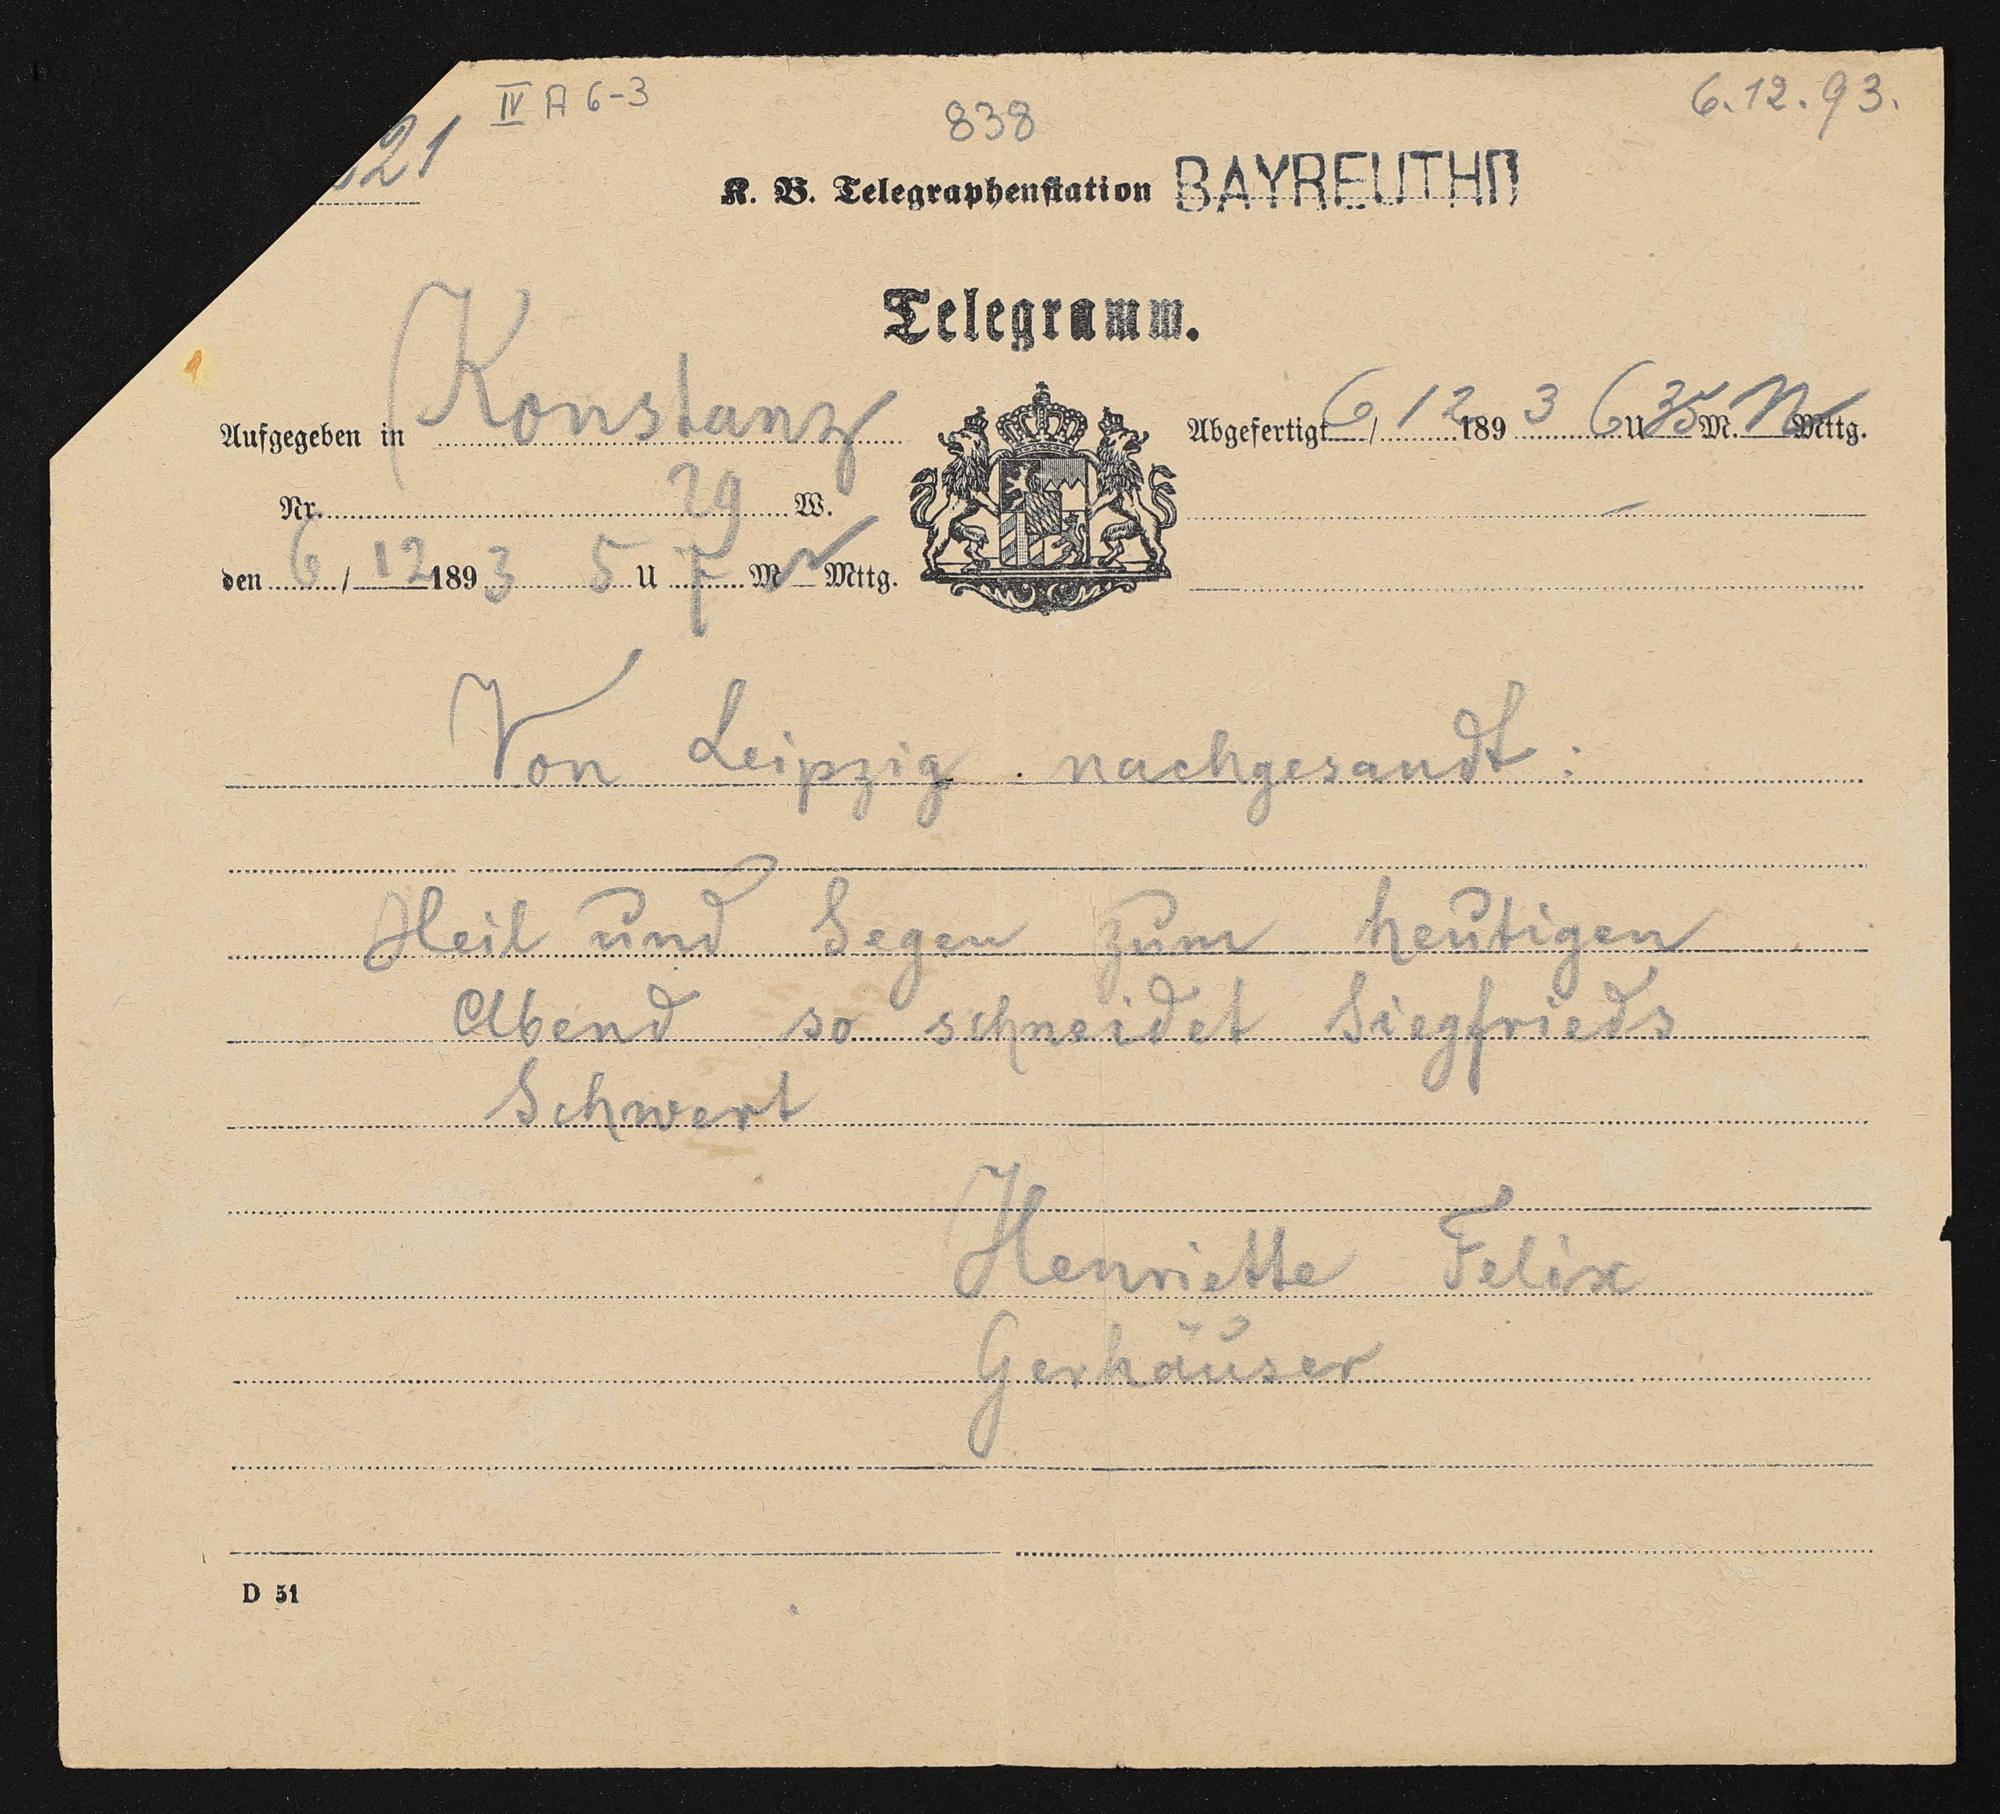 IV A 6-3
838
6.12.93.
21
K. B. Telegraphenstation BAYREUTH
Telegramm.
Aufgegeben in Konstanz
Abgefertigt 6 / 12 1893 6 U 35 M. N Mttg.
Nr. 29 W.
den 6 / 12 1893 5 U 7 M N Mttg.
Von Leipzig nachgesandt:
Heil und Segen zum heutigen
Abend so schneidet Siegfrieds
Schwert
Henriette Felix
Gerhäuser
D 51